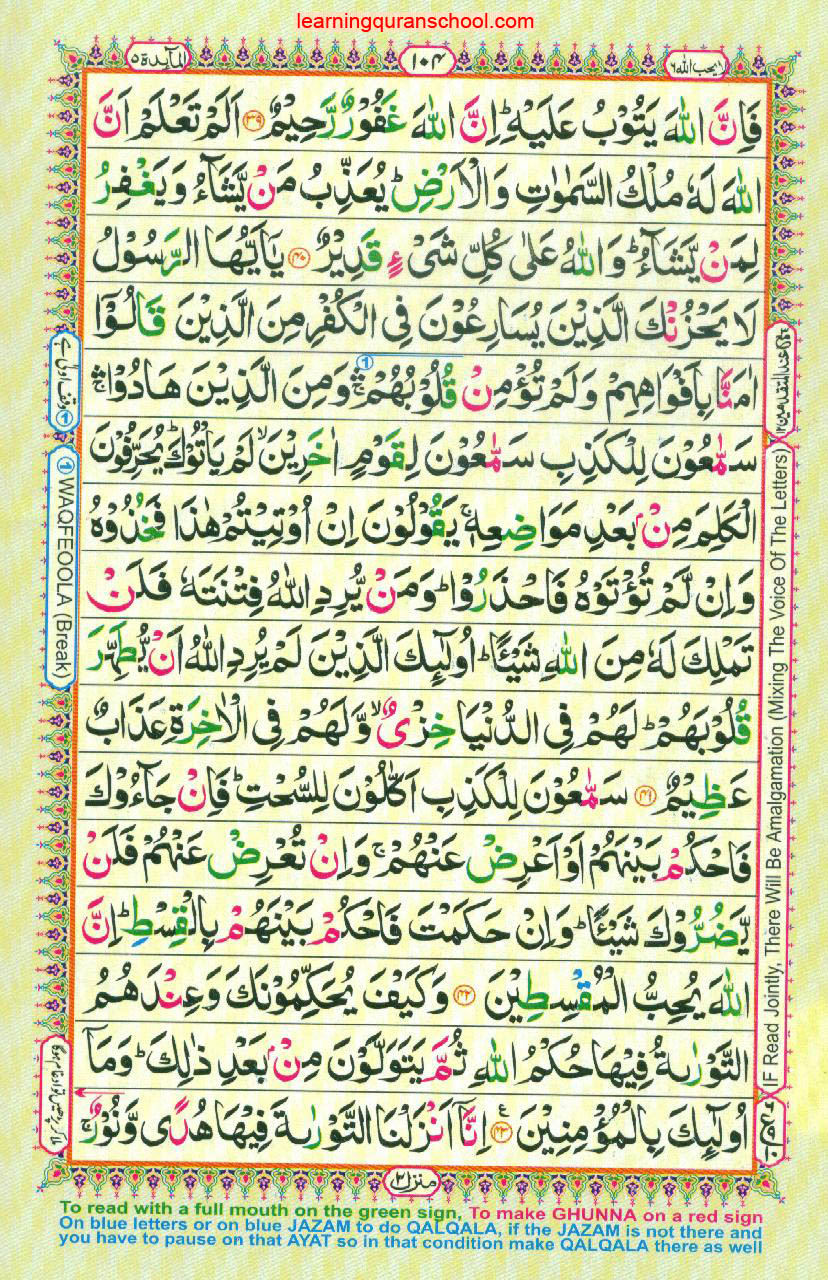 learningquranschool.com
المآئدة ۵
۱۰۴
لا یحب الله ۶
فَاِنَّ اللّٰهَ یَتُوْبُ عَلَیْهِ ؕ اِنَّ اللّٰهَ غَفُوْرٌ رَّحِیْمٌ ﴿۳۹﴾ اَلَمْ تَعْلَمْ اَنَّ
اللّٰهَ لَهٗ مُلْكُ السَّمٰوٰتِ وَ الْاَرْضِ ؕ یُعَذِّبُ مَنْ یَّشَآءُ وَ یَغْفِرُ
لِمَنْ یَّشَآءُ ؕ وَ اللّٰهُ عَلٰی كُلِّ شَیْءٍ قَدِیْرٌ ﴿۴۰﴾ یٰۤاَیُّهَا الرَّسُوْلُ
لَا یَحْزُنْكَ الَّذِیْنَ یُسَارِعُوْنَ فِی الْكُفْرِ مِنَ الَّذِیْنَ قَالُوْۤا
اٰمَنَّا بِاَفْوَاهِهِمْ وَ لَمْ تُؤْمِنْ قُلُوْبُهُمْ ۛۚ وَ مِنَ الَّذِیْنَ هَادُوْا ۛۚ
سَمّٰعُوْنَ لِلْكَذِبِ سَمّٰعُوْنَ لِقَوْمٍ اٰخَرِیْنَ ۙ لَمْ یَاْتُوْكَ ؕ یُحَرِّفُوْنَ
الْكَلِمَ مِنْۢ بَعْدِ مَوَاضِعِهٖ ۚ یَقُوْلُوْنَ اِنْ اُوْتِیْتُمْ هٰذَا فَخُذُوْهُ
وَ اِنْ لَّمْ تُؤْتَوْهُ فَاحْذَرُوْا ؕ وَ مَنْ یُّرِدِ اللّٰهُ فِتْنَتَهٗ فَلَنْ
تَمْلِكَ لَهٗ مِنَ اللّٰهِ شَیْـًٔا ؕ اُولٰٓىِٕكَ الَّذِیْنَ لَمْ یُرِدِ اللّٰهُ اَنْ یُّطَهِّرَ
قُلُوْبَهُمْ ؕ لَهُمْ فِی الدُّنْیَا خِزْیٌ ۙ وَّ لَهُمْ فِی الْاٰخِرَةِ عَذَابٌ
عَظِیْمٌ ﴿۴۱﴾ سَمّٰعُوْنَ لِلْكَذِبِ اَكّٰلُوْنَ لِلسُّحْتِ ؕ فَاِنْ جَآءُوْكَ
فَاحْكُمْ بَیْنَهُمْ اَوْ اَعْرِضْ عَنْهُمْ ۚ وَ اِنْ تُعْرِضْ عَنْهُمْ فَلَنْ
یَّضُرُّوْكَ شَیْـًٔا ؕ وَ اِنْ حَكَمْتَ فَاحْكُمْ بَیْنَهُمْ بِالْقِسْطِ ؕ اِنَّ
اللّٰهَ یُحِبُّ الْمُقْسِطِیْنَ ﴿۴۲﴾ وَ كَیْفَ یُحَكِّمُوْنَكَ وَ عِنْدَهُمُ
التَّوْرٰىةُ فِیْهَا حُكْمُ اللّٰهِ ثُمَّ یَتَوَلَّوْنَ مِنْۢ بَعْدِ ذٰلِكَ ؕ وَ مَاۤ
اُولٰٓىِٕكَ بِالْمُؤْمِنِیْنَ ﴿۴۳﴾ ع اِنَّاۤ اَنْزَلْنَا التَّوْرٰىةَ فِیْهَا هُدًی وَّ نُوْرٌ ۚ
منزل ۲
① وقف اولیٰ ہے
① WAQFEOOLA (Break)
ملا کر پڑھیں تو ادغام ہوگا
IF Read Jointly, There Will Be Amalgamation (Mixing The Voice Of The Letters)
To read with a full mouth on the green sign, To make GHUNNA on a red sign
On blue letters or on blue JAZAM to do QALQALA, if the JAZAM is not there and
you have to pause on that AYAT so in that condition make QALQALA there as well